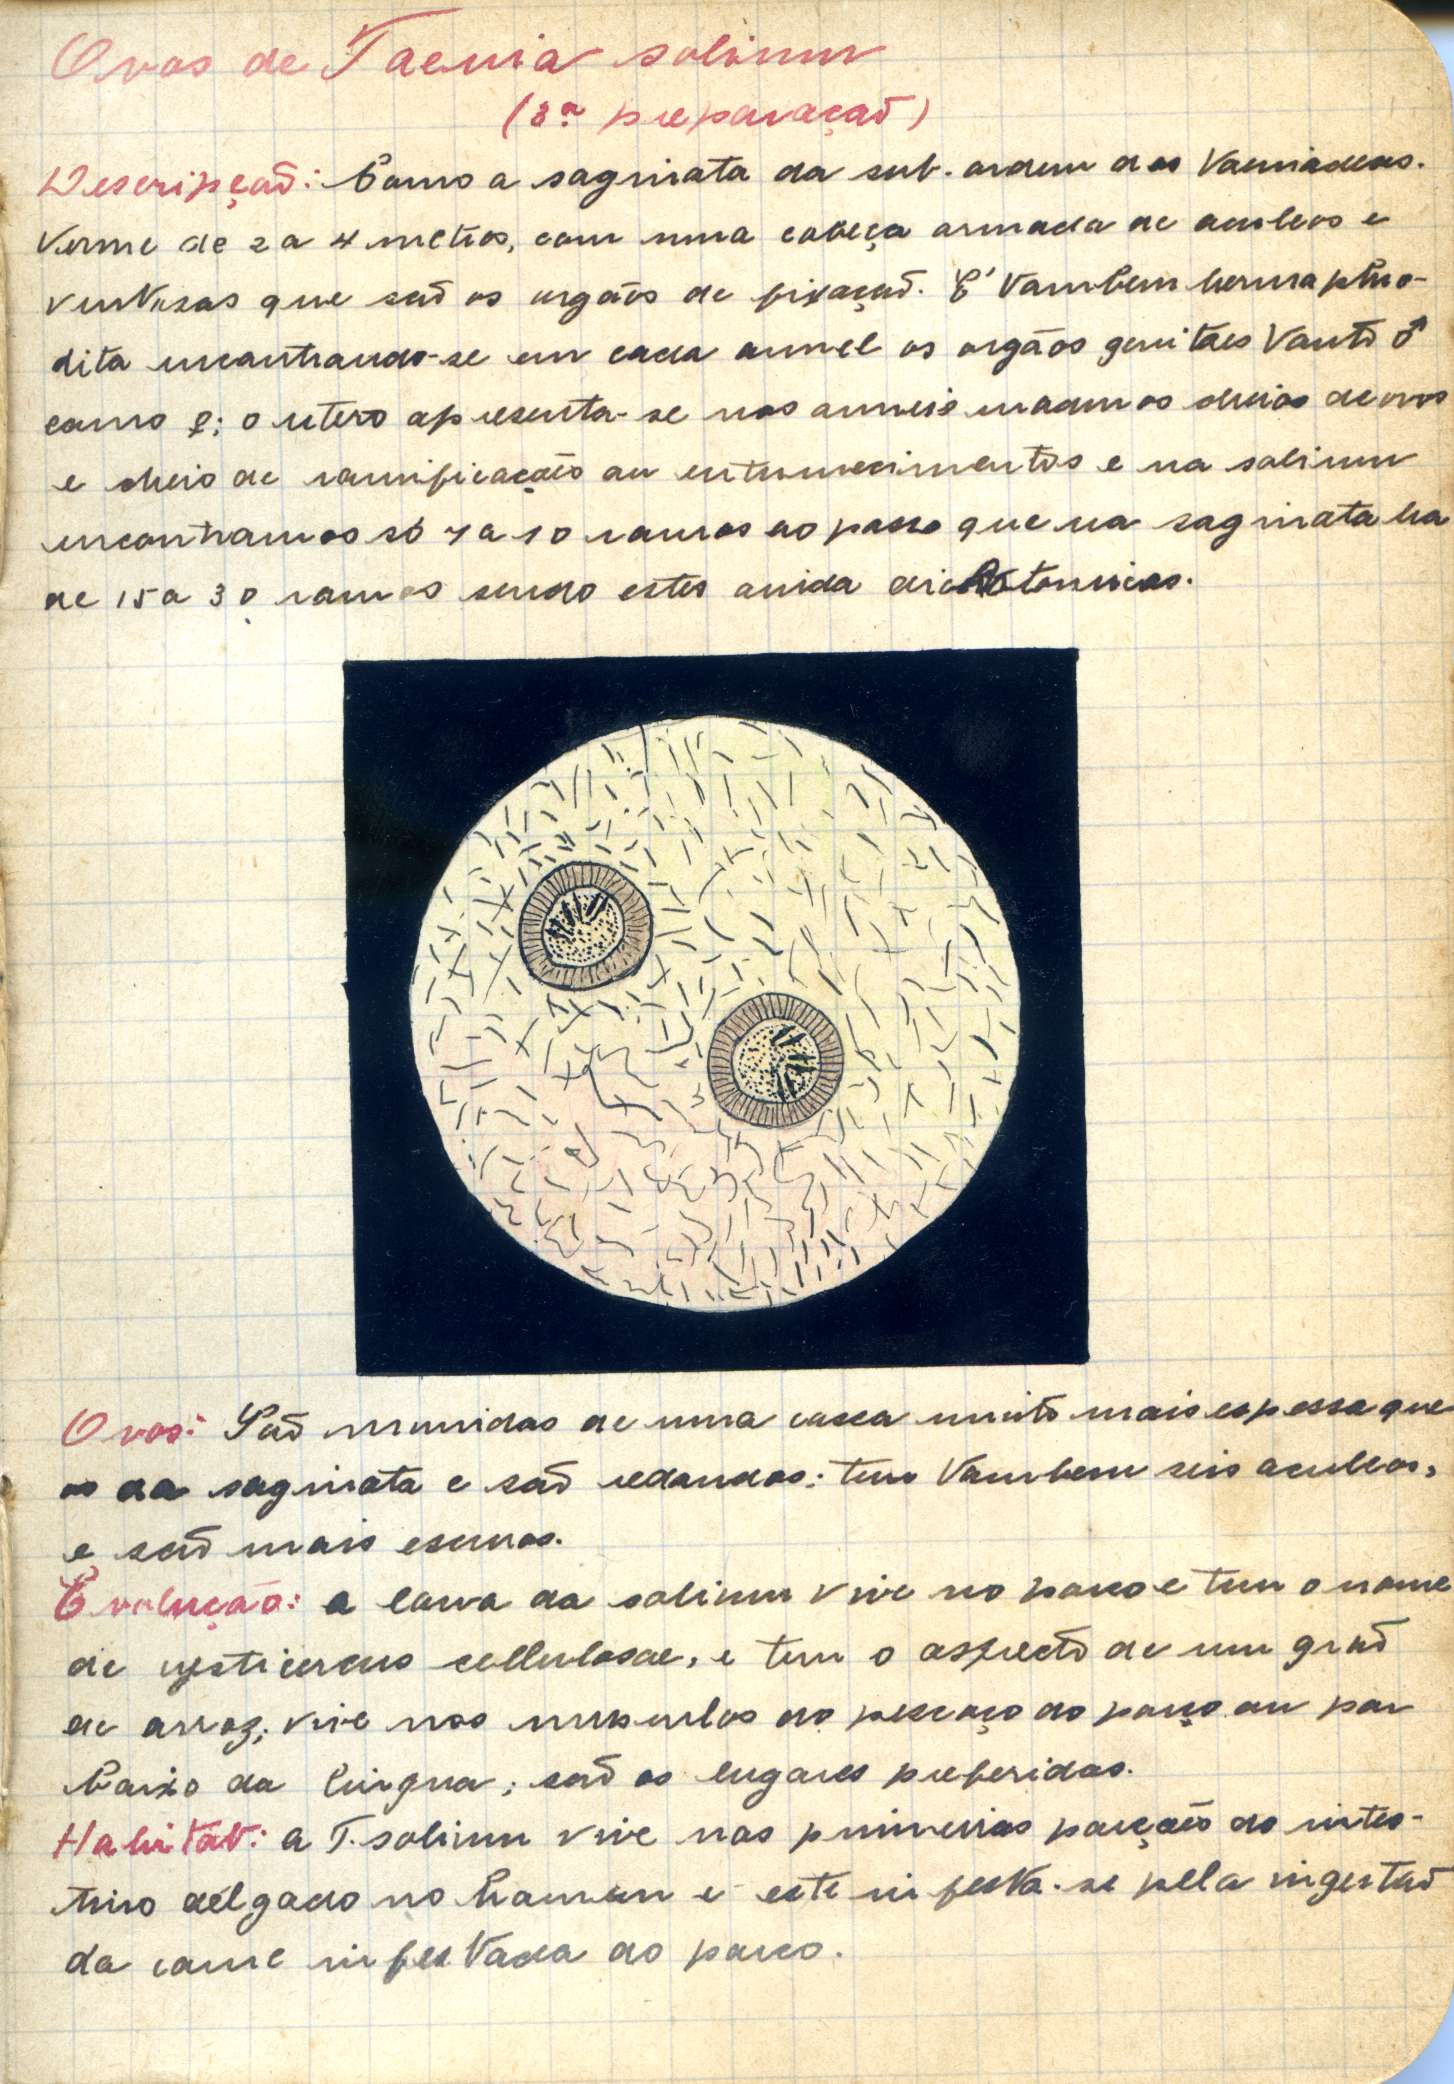 Ovos de Taenia solium
(3ª preparação)
Descripção: Como a saginata da sub-ordem dos Taeniadeos.
Verme de 2 a 4 metros, com uma cabeça armada de aculeos e
ventosas que são os orgãos de fixação. E' tambem hermaphro-
dita encontrando-se em cada annel os orgãos genitaes tanto ♂
como ♀; o utero apresenta-se nos anneis maduros cheios de ovos
e cheio de ramificações ou entumecimentos e na solium
encontramos só 7 a 10 ramos ao passo que na saginata ha
de 15 a 30 ramos sendo estes ainda dichotomicos.
Ovos: São munidos de uma casca muito mais espessa que
os da saginata e são redondos; tem tambem seis aculeos,
e são mais escuros.
Evolução: a larva da solium vive no porco e tem o nome
de cysticercus cellulosae, e tem o aspecto de um grão
de arroz; vive nos musculos do pescoço do porco ou por
baixo da lingua; são os lugares preferidos.
Habitat: a T. solium vive nas primeiras porções do intes-
tino delgado no homem e este infesta-se pela ingestão
da carne infestada do porco.